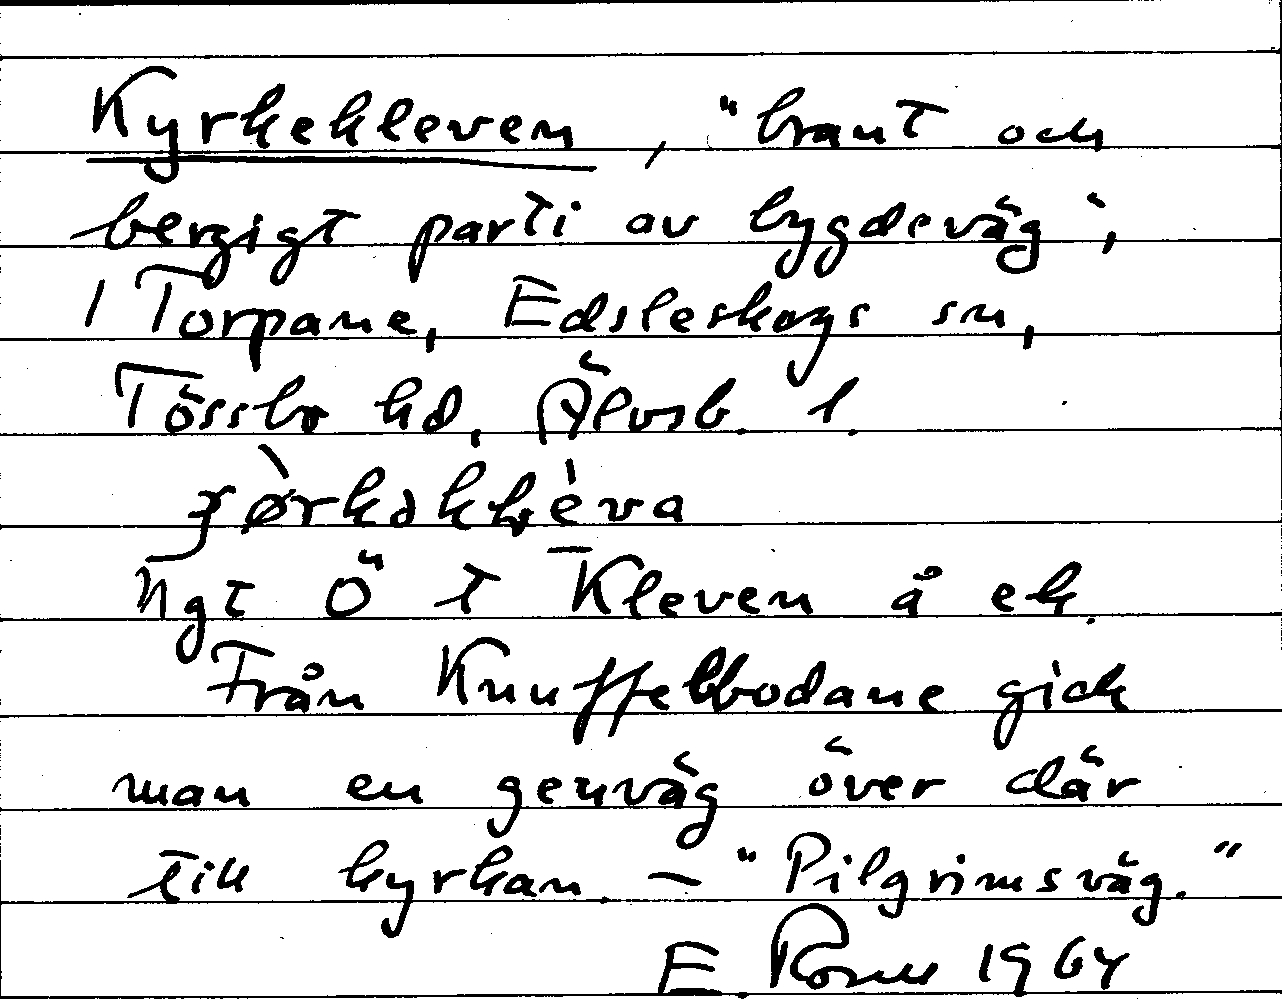 Kyrkekleven, "brant och
bergigt parti av bygdeväg",
i Torpane, Edsleskogs sn,
Tössbo hd, Älvsb. l.
Ngt Ö t Kleven å ek.
Från Knuffebbodane gick
man en genväg över där
till kyrkan. — "Pilgrimsväg."
E. 1964